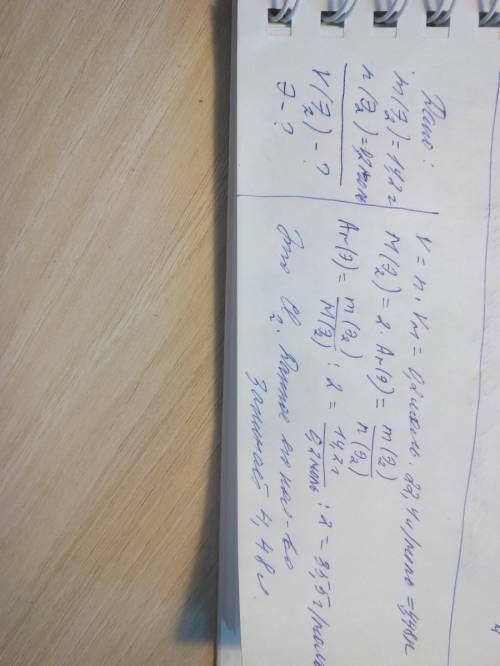 Дано:
m(Э₂) = 14,2 г
n(Э₂) = 0,2 моль
V(Э₂) - ?
Э - ?
V = n · Vм = 0,2 моль · 22,4 л/моль = 4,48 л
M(Э₂) = 2 · Ar(Э) = m(Э₂)/n(Э₂)
Ar(Э) = m(Э₂)/M(Э₂) : 2 = 14,2 г/0,2 моль : 2 = 35,5 г/моль
Это Cl₂. Данное его кол-во
занимает 4,48 л.
4